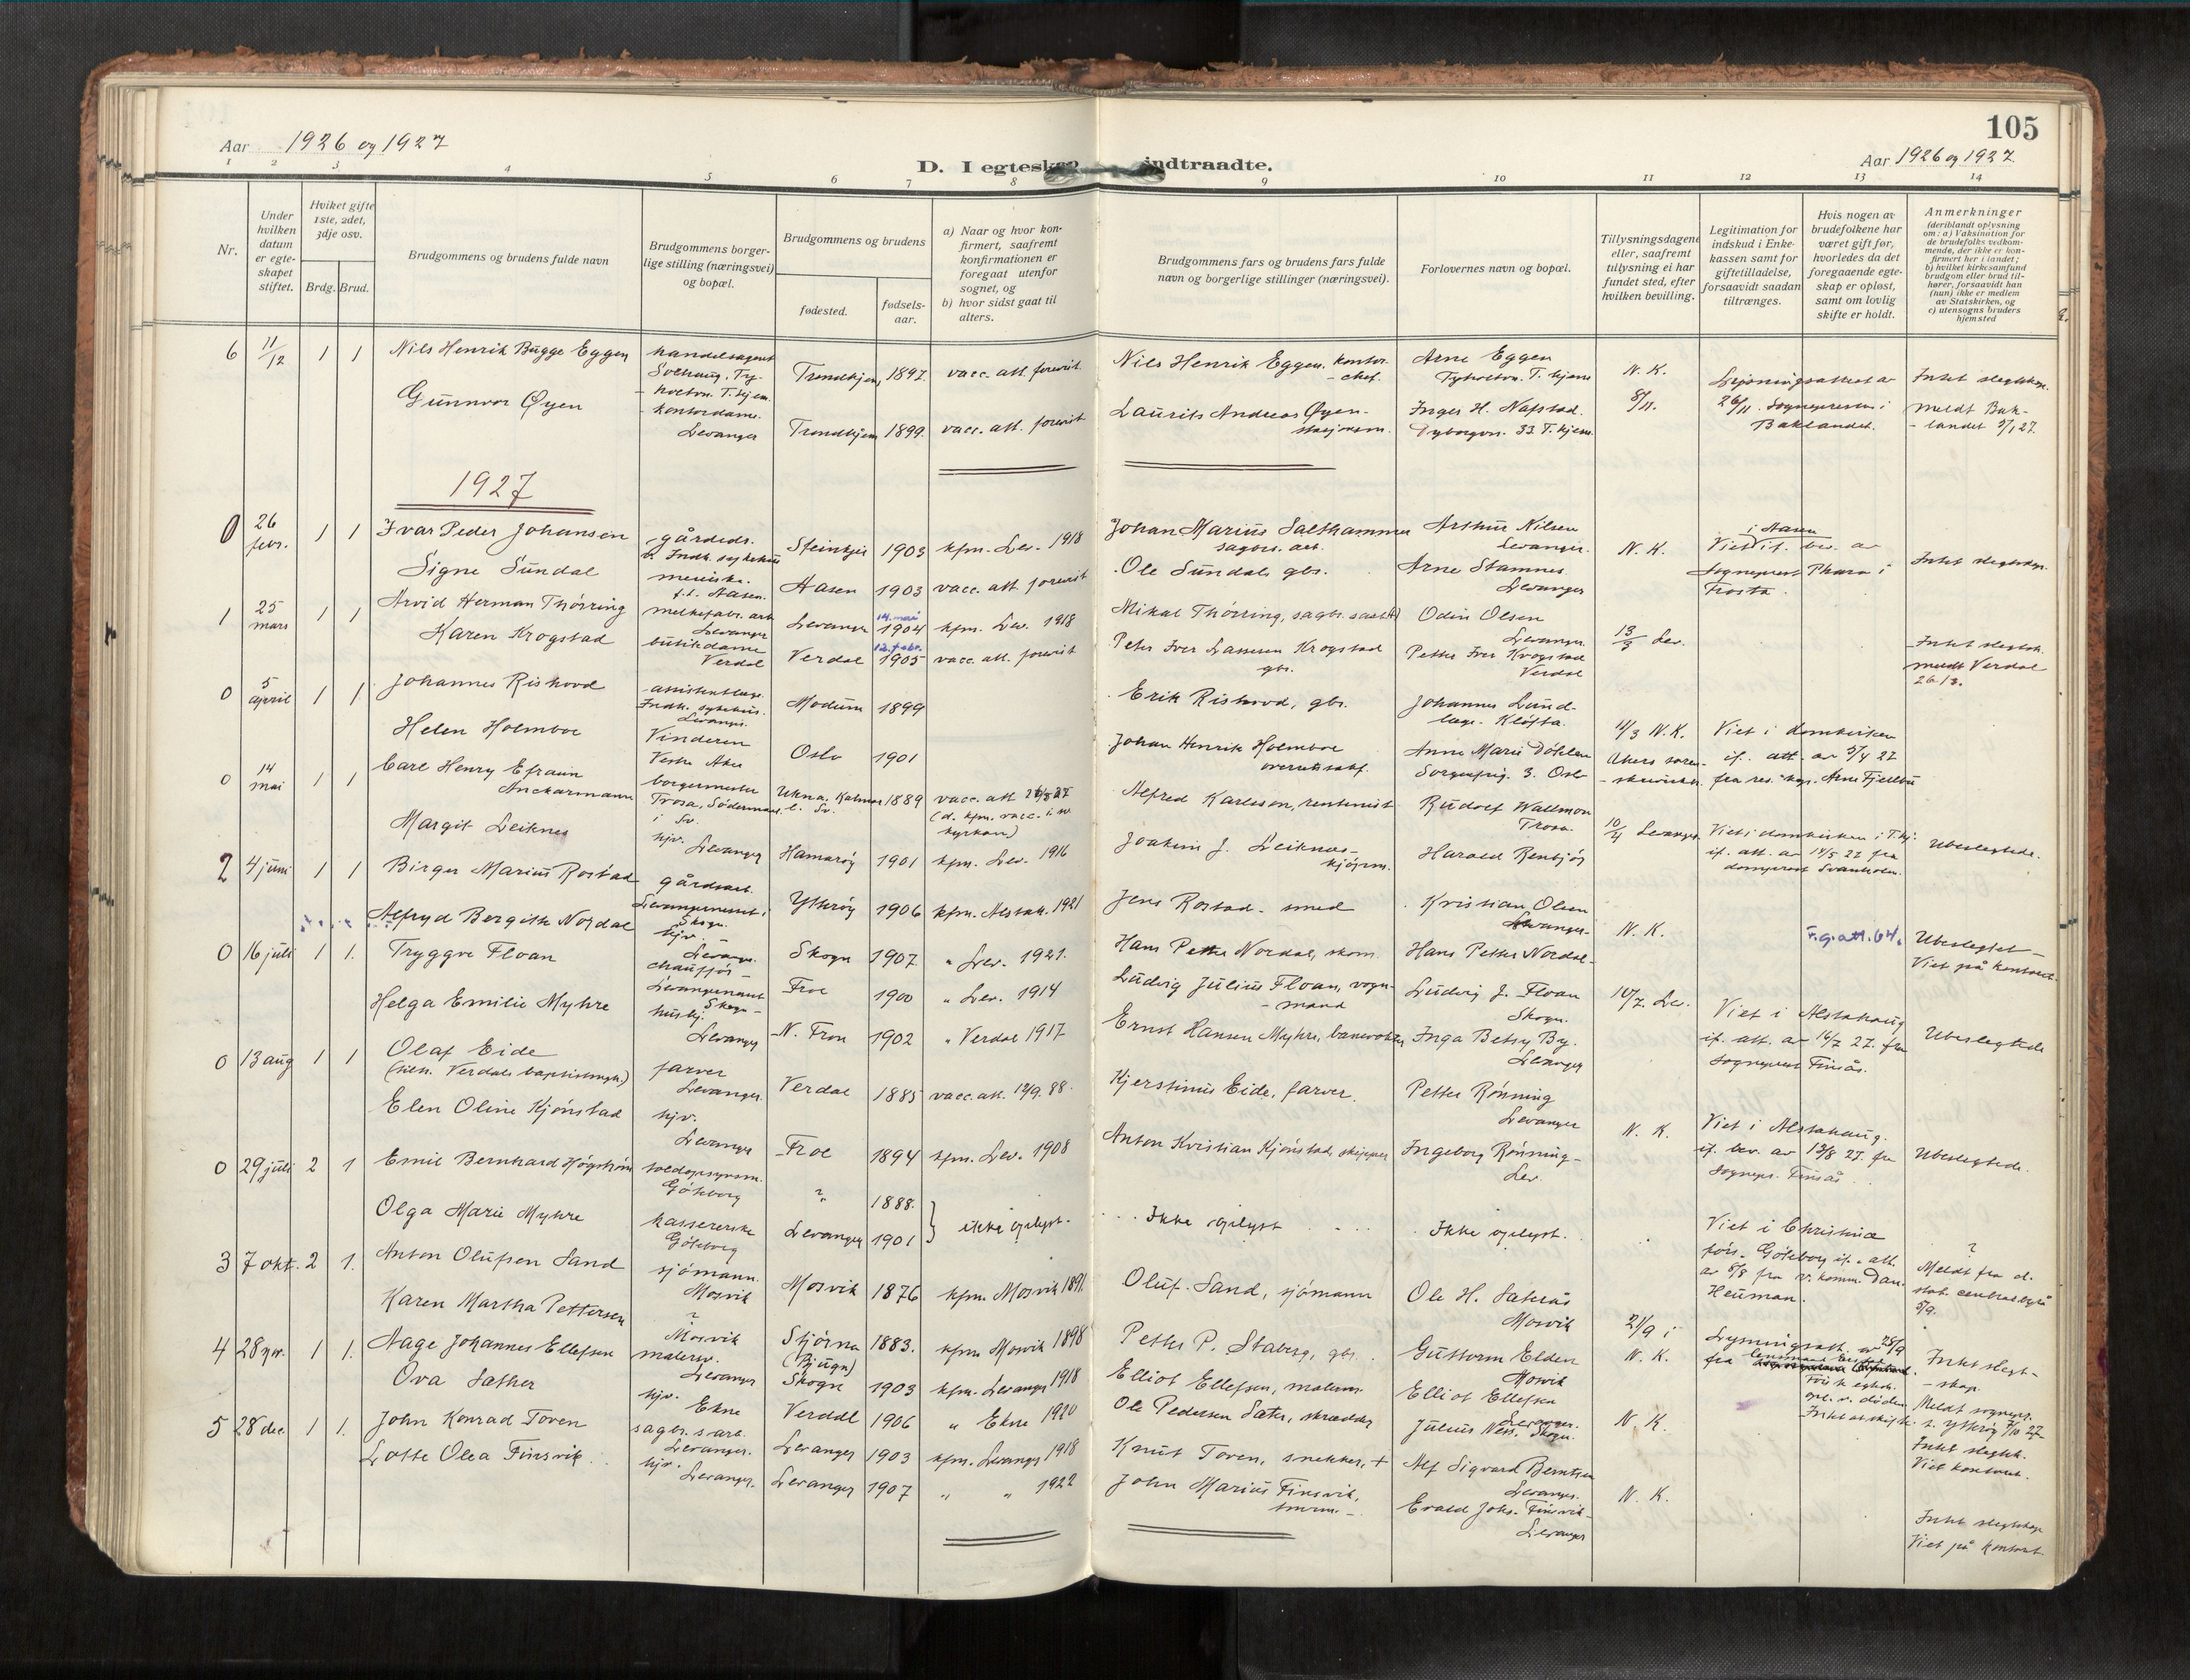 105
Aar 1926 og 1927
D. I egteskap indtraadte.
Aar 1926 og 1927
1 2 3 4 5 6 7 8 9 10 11 12 13 14
Nr.
Under hvilken datum er egteskapet stiftet.
Hvilket gifte 1ste, 2det, 3dje osv.
Brdg. Brud.
Brudgommens og brudens fulde navn
Brudgommens borgerlige stilling (næringsvei) og bopæl.
Brudgommens og brudens
fødested.
fødselsaar.
a) Naar og hvor konfirmert, saafremt konfirmationen er foregaat utenfor sognet, og
b) hvor sidst gaat til alters.
Brudgommens fars og brudens fars fulde navn og borgerlige stillinger (næringsvei).
Forlovernes navn og bopæl.
Tillysningsdagene eller, saafremt tillysning ei har fundet sted, efter hvilken bevilling.
Legitimation for indskud i Enkekassen samt for giftetilladelse, forsaavidt saadan tiltrænges.
Hvis nogen av brudefolkene har været gift før, hvorledes da det foregaaende egteskap er opløst, samt om lovlig skifte er holdt.
Anmerkninger (deriblandt oplysning om: a) Vaksination for de brudefolks vedkommende, der ikke er konfirmert her i landet; b) hvilket kirkesamfund brudgom eller brud tilhører, forsaavidt han (hun) ikke er medlem av Statskirken, og c) utensogns bruders hjemsted
6 11/12 1 1 Nils Henrik Bugge Eggen handelsagent Trondhjem 1897 vacc. att. forevist Nils Henrik Eggen, kontorchef. Arne Eggen T.hjem N. K. 8/11.
Gunnvor Øyen kontordame. Levanger Trondhjem 1899 vacc. att. forevist Laurits Andreas Øyen Inger H. Nafstad. 33 T.hjem 26/11. Sogneprestens i Baklandet. meldt Baklandet 3/1 27.
1927
0 26 febr. 1 1 Ivar Peder Johansen gårdsdr. Steinkjer 1903 kfm. Lev. 1918 Johan Marius Salthammer sagbr. arb. Arthur Nilsen Levanger. N. K. Viet i Aasen if. bev. av sogneprest i Frosta.
Signe Sundal Aasen 1903 vacc. att. forevist Ole Sundal, gbr. Arne Stamnes Levanger
1 25 mars 1 1 Arvid Herman Thørring melkefabr. arb. Levanger Levanger 14. mai 1904 kfm. Lev. 1918 Mikal Thørring, sagbr. Odin Olsen Levanger. 13/3 Lev.
Karen Krogstad butikdame Verdal Verdal 12. febr. 1905 vacc. att. forevist Peter Iver Lassesen Krogstad gbr. Petter Iver Krogstad Verdal meldt Verdal
0 5 april 1 1 Johannes Rishovd assistentlæge Indh. sykehus. Levanger. Modum 1899 Erik Rishovd, gbr. Johannes Lund læge. Kløfta. 11/3 N. K. Viet i domkirken
Helen Holmboe Vinderen Vestre Aker Oslo 1901 Johan Henrik Holmboe Anne Marie Døhlen Sorgenfrig. 3. Oslo if. att. av 5/4 27 fra res. kap. Arne Fjellbu
0 14 mai 1 1 Carl Henry Efraim Anckarmann borgermester Trosa, Södermanl. i Sv. Ukna, Kalmar l. Sv. 1889 vacc. att. Alfred Karlsson, rentenist Rudolf Wallmon Trosa 10/4 Levanger Viet i domkirken i T.hj. if. att. av 14/5 27 fra domprost Svanholm. Ubeslegtede.
Margit Leiknes hjv. Levanger Hamarøy 1901 kfm. Lev. 1916 Joakim J. Leiknes kjøpm. Harald Renbjør
2 4 juni 1 1 Birger Marius Rostad gårdsarb. Levangernesset i Skogn Ytterøy 1906 kfm. Alstah. 1921 Jens Rostad - smed Kristian Olsen Levanger N. K. F.g.att. 64. Ubeslegtet - Viet på kontoret.
Alfryd Bergith Nordal hjv. Levanger Skogn 1907 " Lev. 1921. Hans Petter Nordal, skom. Hans Petter Nordal
0 16 juli 1 1. Tryggve Floan chauffør Levangernesset Skogn Frol 1900 " Lev. 1914 Ludvig Julius Floan, vognmand Ludvig J. Floan Skogn. 10/7. Lev. Viet i Alstahaug if. att. av 16/7 27. fra sogneprest Finsås. Ubeslegtede
Helga Emilie Myhre hushj. Levanger N. Fron 1902 " Verdal 1917 Ernst Hansen Myhre, banevokter Inga Betsy By. Levanger
0 13 aug 1 1 Olaf Eide farver Levanger. Verdal 1885 vacc. att. 12/9. 88. Kjerstinus Eide, farver. Petter Rønning Levanger N. K. Viet i Alstahaug. if. bev. av 13/8 27. fra sognepr. Finsås Ubeslegtede.
(tilh. Verdals baptistmgh.)
Elen Oline Kjønstad hjv. Levanger Frol 1894 kfm. Lev. 1908 Anton Kristian Kjønstad, skipper Ingeborg Rønning Lev.
0 29 juli 2 1 Emil Bernhard Högström Göteborg ? 1888. ikke oplyst. Ikke oplyst Ikke oplyst. Viet i Christinæ förs. Göteborg if. att. av 8/8 fra v. komm. Dan. Heuman. ? Meldt fra d. stat. centralbyrå 5/9.
Olga Marie Myhre kassererske Göteborg Levanger 1901
3 7 okt. 2 1. Anton Olufsen Sand sjømann. Mosvik Mosvik 1876 kfm. Mosvik 1891. Oluf Sand, sjømann Ole H. Saltrås Mosvik 21/9 i N. K. Lysningsatt. av 28/9 fra
Karen Martha Pettersen ? Mosvik Stjørna (Bjugn) 1883. kfm. Mosvik 1898 Petter P. Staberg, gbr. Guttorm Elden Mosvik Intet slegtskap. Meldt sognepr. t. Ytterøy 7/10 27
4 28 nov. 1 1. Aage Johannes Ellefsen malersv. Levanger Skogn 1903 kfm. Levanger 1918 Elliot Ellefsen, malerm. Elliot Ellefsen Levanger. N. K. Intet slegtsk. Viet kontoret.
Ova Sather hjv. Ekne Verdal 1906 " Ekne 1920 Ole Pedersen Sæter, skrædder Julius Ness. Skogn.
5 28 dec. 1 1. John Konrad Toven sagbr.s arb. Levanger. Levanger 1903 kfm. Levanger 1918 Knut Toven, snekker, + Alf Sigvard Berntsen Levanger. N. K. Intet slegtskap Viet på kontoret.
Lotte Olea Finsvik hjv. Levanger. Levanger 1907 " " 1922 John Marius Finsvik, Evald Johs. Finsvik Levanger